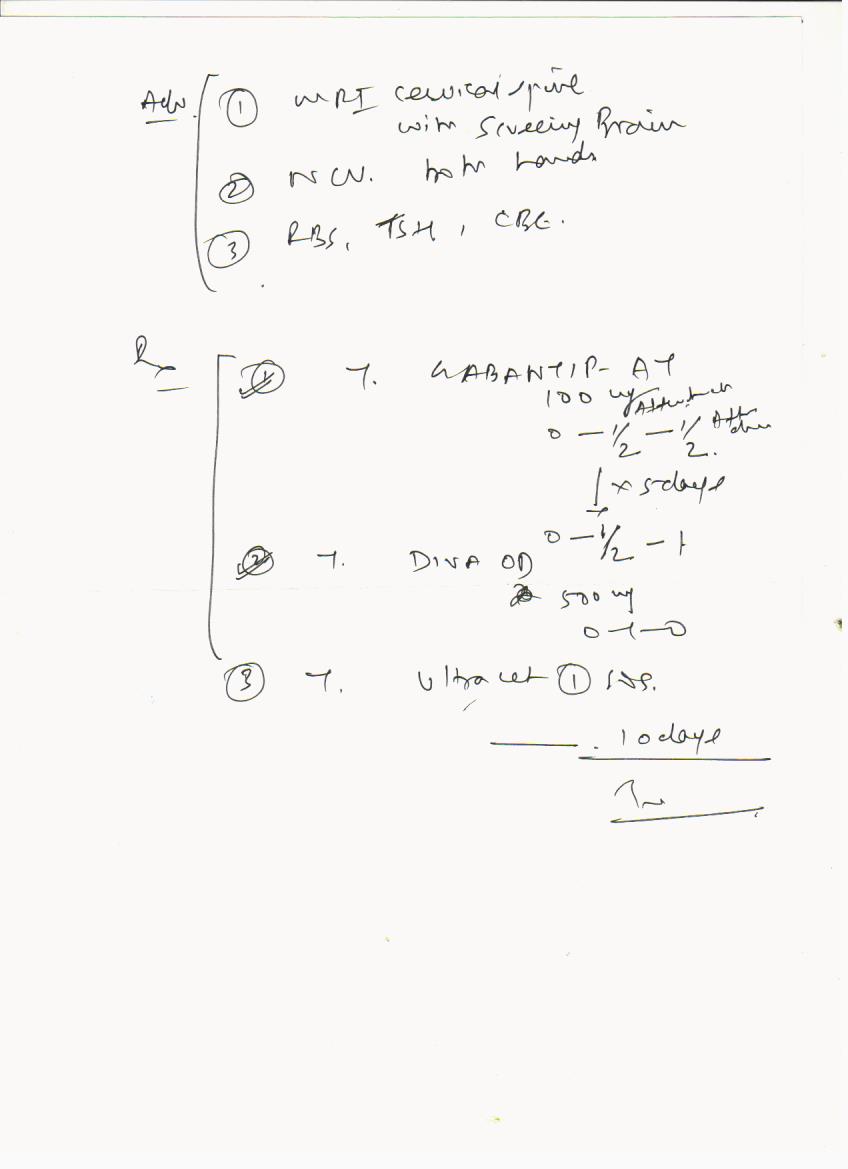 Adv. ① MRI cervical spine
with Screening Brain
② NCV. both hands
③ RBS, TSH, CBC.
Rx
① T. GABANTIP-AT
100 mg
0 — 1/2 — 1/2 After
↓ x 5 days
0 — 1/2 — 1
② T. DIVA OD
500 mg
0-1-0
③ T. Ultracet ① SOS.
10 days